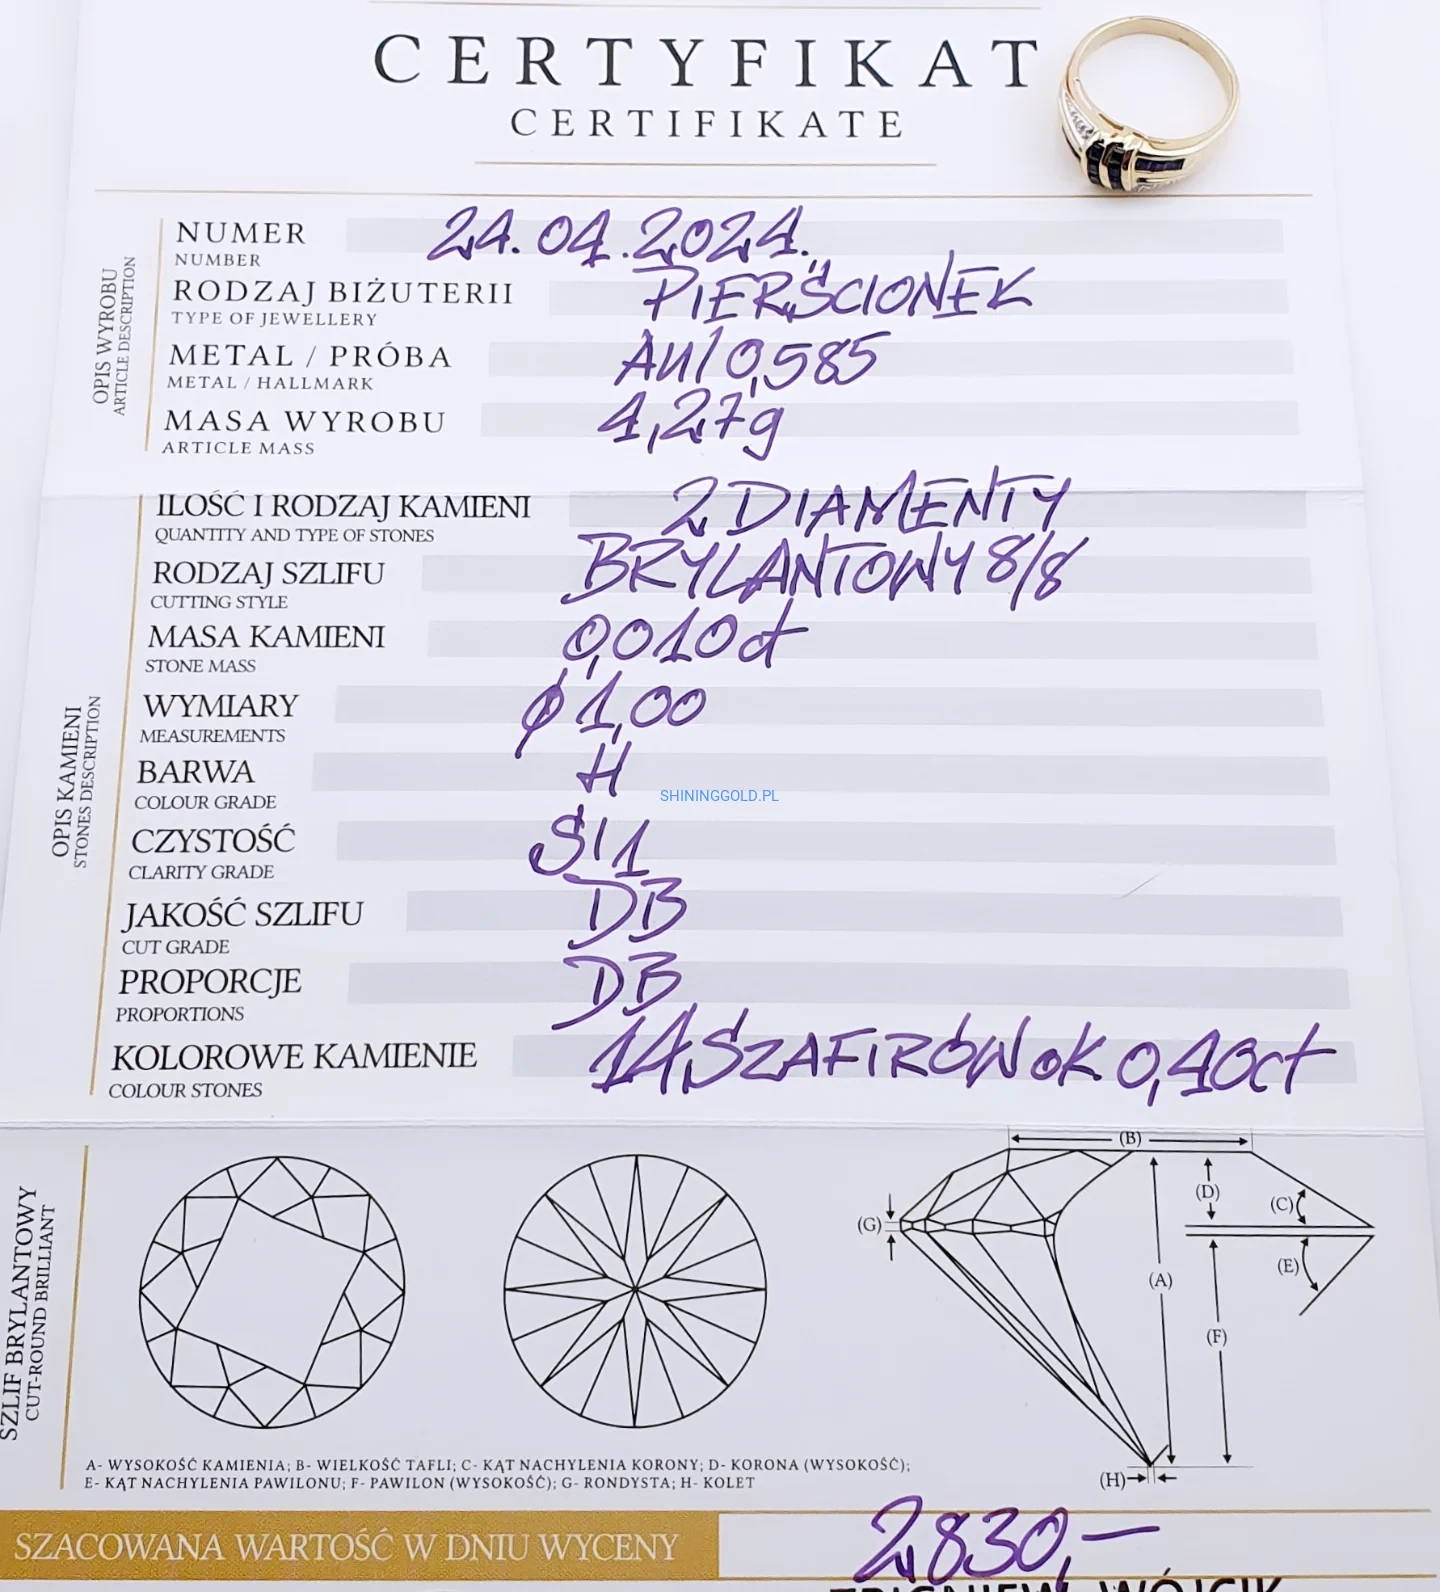 CERTYFIKAT
CERTIFIKATE
OPIS WYROBU
ARTICLE DESCRIPTION
NUMER 24.04.2024.
NUMBER
RODZAJ BIŻUTERII PIERŚCIONEK
TYPE OF JEWELLERY
METAL / PRÓBA Au/0,585
METAL / HALLMARK
MASA WYROBU 4,27g
ARTICLE MASS
OPIS KAMIENI
STONES DESCRIPTION
ILOŚĆ I RODZAJ KAMIENI 2 DIAMENTY
QUANTITY AND TYPE OF STONES
RODZAJ SZLIFU BRYLANTOWY 8/8
CUTTING STYLE
MASA KAMIENI 0,010ct
STONE MASS
WYMIARY ϕ 1,00
MEASUREMENTS
BARWA H
COLOUR GRADE
SHININGGOLD.PL
CZYSTOŚĆ SI1
CLARITY GRADE
JAKOŚĆ SZLIFU DB
CUT GRADE
PROPORCJE DB
PROPORTIONS
KOLOROWE KAMIENIE 14 SZAFIRÓW ok. 0,40ct
COLOUR STONES
SZLIF BRYLANTOWY
CUT-ROUND BRILLIANT
(B)
(D)
(C)
(G)
(E)
(A)
(F)
(H)
A- WYSOKOŚĆ KAMIENIA; B- WIELKOŚĆ TAFLI; C- KĄT NACHYLENIA KORONY; D- KORONA (WYSOKOŚĆ);
E- KĄT NACHYLENIA PAWILONU; F- PAWILON (WYSOKOŚĆ); G- RONDYSTA; H- KOLET
SZACOWANA WARTOŚĆ W DNIU WYCENY 2830,—
ZBIGNIEW WÓJCIK